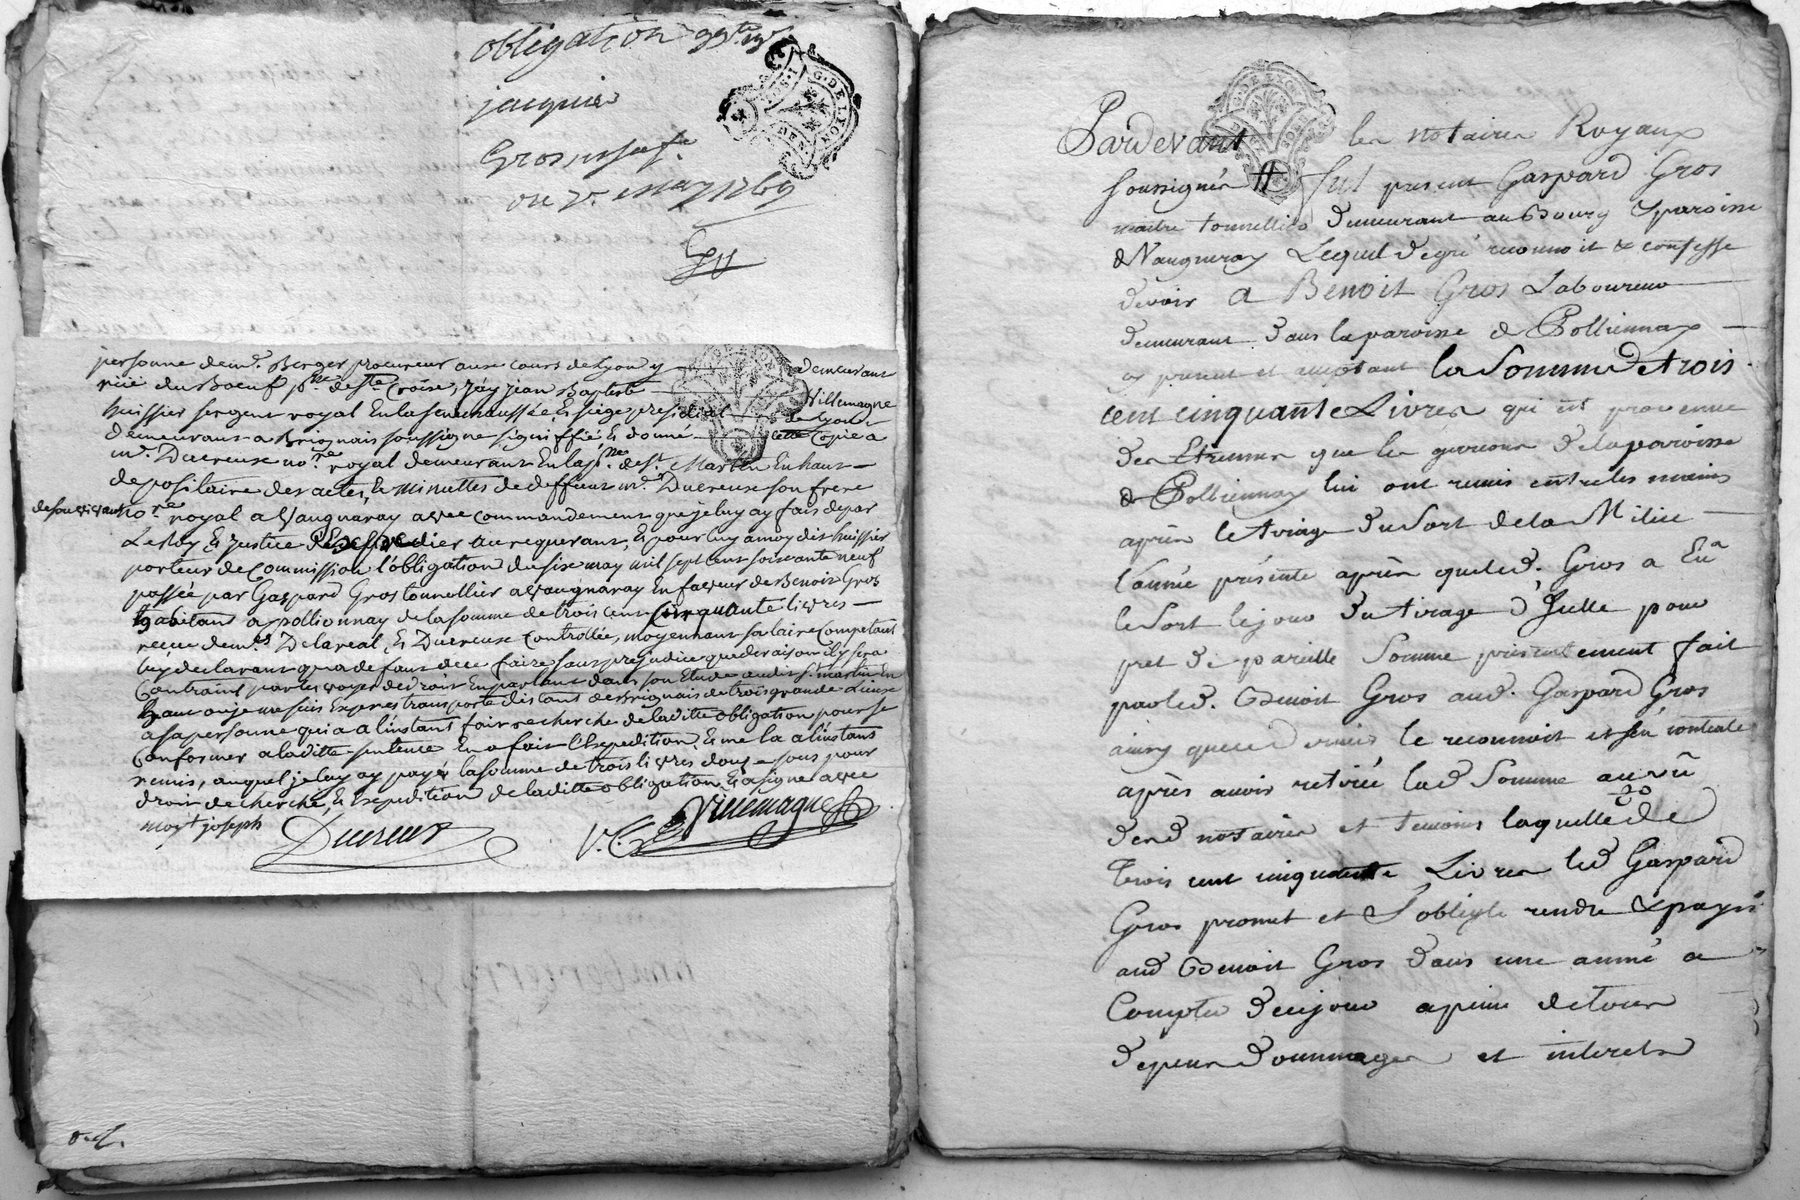 obligation
jacquier
Gros
may 1769
G. DE LYON
personne de m.e Berger procureur aux cours de Lyon y demeurant
rue du Boeuf p.sse de Ste Croise, jay jean Baptiste Willemagne
huissier sergent royal En la senechaussée Et siege presidial de Lyon
demeurant a Brignais soussigne signiffié Et donné cette Copie a
m.e Ducreux no.re royal demeurant En la p.sse de St Martin En haut
depositaire des actes Et minuttes de deffeunt m.e Ducreux son frere
de son vivant no.re royal a Vaugnaray avec commandement que je luy ay fais de par
Le Roy Et justice d'Expedier au requerant, Et pour luy a moy dit huissier
porteur de Commission l'obligation du six may mil sept cent soixante neuf
passée par Gaspard Gros tonnellier a Vaugnaray En faveur de Benoit Gros
habitant a pollionnay de la somme de trois cent cinquante livres
reçue de m.es Delareal Et Ducreux Controllée, moyennant salaire Competant
luy declarant qu'a defaut de ce faire sans prejudice que de raison il y sera
Contraint par les voyes de droit En parlant dans son Etude audit St martin En
haut ou je me suis Expres transporté distant de Brignais de trois grande Lieues
a sa personne qui a a l'instant fait recherche de laditte obligation pour se
Conformer a laditte sentence En a fait l'Expedition, Et me la a l'instant
remis, auquel je luy ay payé la somme de trois livres douze sous pour
droit de cherche, Et Expedition de laditte obligation, Et a signé avec
moy joseph
Ducreux
Villemagne
Pardevant les notaires Royaux
soussignés fut present Gaspard Gros
maitre tonnellier demeurant au Bourg & paroisse
de Vaugneray Lequel de gré reconnoit & confesse
devoir a Benoit Gros Laboureur
demeurant dans la paroisse de Pollionnay
cy present et acceptant la somme de trois
cent cinquante Livres qui est provenue
des Etrennes que les garcons de la paroisse
de Pollionnay lui ont remis entre les mains
après le tirage du sort de la Milice
l'année présente après que led. Gros a Eu
le sort le jour du tirage d'Icelle pour
pret de pareille somme présentement fait
par led. Benoit Gros aud. Gaspard Gros
ainsy que ce d. dernier le reconnoit et s'en contente
après avoir retirée lad somme au vû
desd notaires et temoins laquelle de
trois cent cinquante Livres led Gaspard
Gros promet et s'oblige rendre & payer
aud Benoit Gros dans une année a
Compter de ce jour a peine de tous
depens dommages et interets